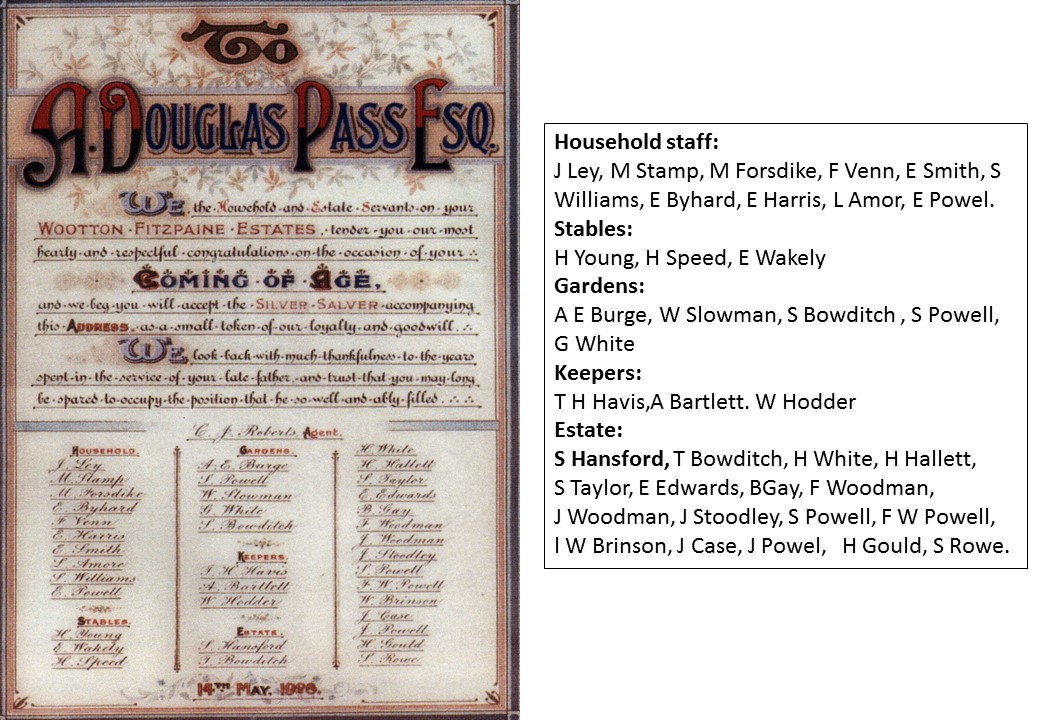 To
A. DOUGLAS PASS ESQ.
WE, the Household and Estate Servants on your
WOOTTON FITZPAINE ESTATES, tender you our most
hearty and respectful congratulations on the occasion of your
COMING OF AGE,
and we beg you will accept the SILVER SALVER accompanying
this ADDRESS, as a small token of our loyalty and goodwill.
WE, look back with much thankfulness to the years
spent in the service of your late father, and trust that you may long
be spared to occupy the position that he so well and ably filled.
C. J. Roberts, Agent.
HOUSEHOLD.
J. Ley
M. Stamp
M. Forsdike
E. Byhard
F. Venn
E. Harris
E. Smith
L. Amore
S. Williams
E. Powell
STABLES.
H. Young
E. Wakely
H. Speed
GARDENS.
A. E. Burge
S. Powell
W. Slowman
G. White
S. Bowditch
KEEPERS.
T. H. Havis
A. Bartlett
W. Hodder
ESTATE.
S. Hansford
T. Bowditch
H. White
H. Hallett
S. Taylor
E. Edwards
B. Gay
F. Woodman
J. Woodman
J. Stoodley
S. Powell
F. W. Powell
W. Brinson
J. Case
J. Powell
H. Gould
S. Rowe
14TH MAY.
Household staff:
J Ley, M Stamp, M Forsdike, F Venn, E Smith, S
Williams, E Byhard, E Harris, L Amor, E Powel.
Stables:
H Young, H Speed, E Wakely
Gardens:
A E Burge, W Slowman, S Bowditch , S Powell,
G White
Keepers:
T H Havis,A Bartlett. W Hodder
Estate:
S Hansford, T Bowditch, H White, H Hallett,
S Taylor, E Edwards, BGay, F Woodman,
J Woodman, J Stoodley, S Powell, F W Powell,
l W Brinson, J Case, J Powel, H Gould, S Rowe.